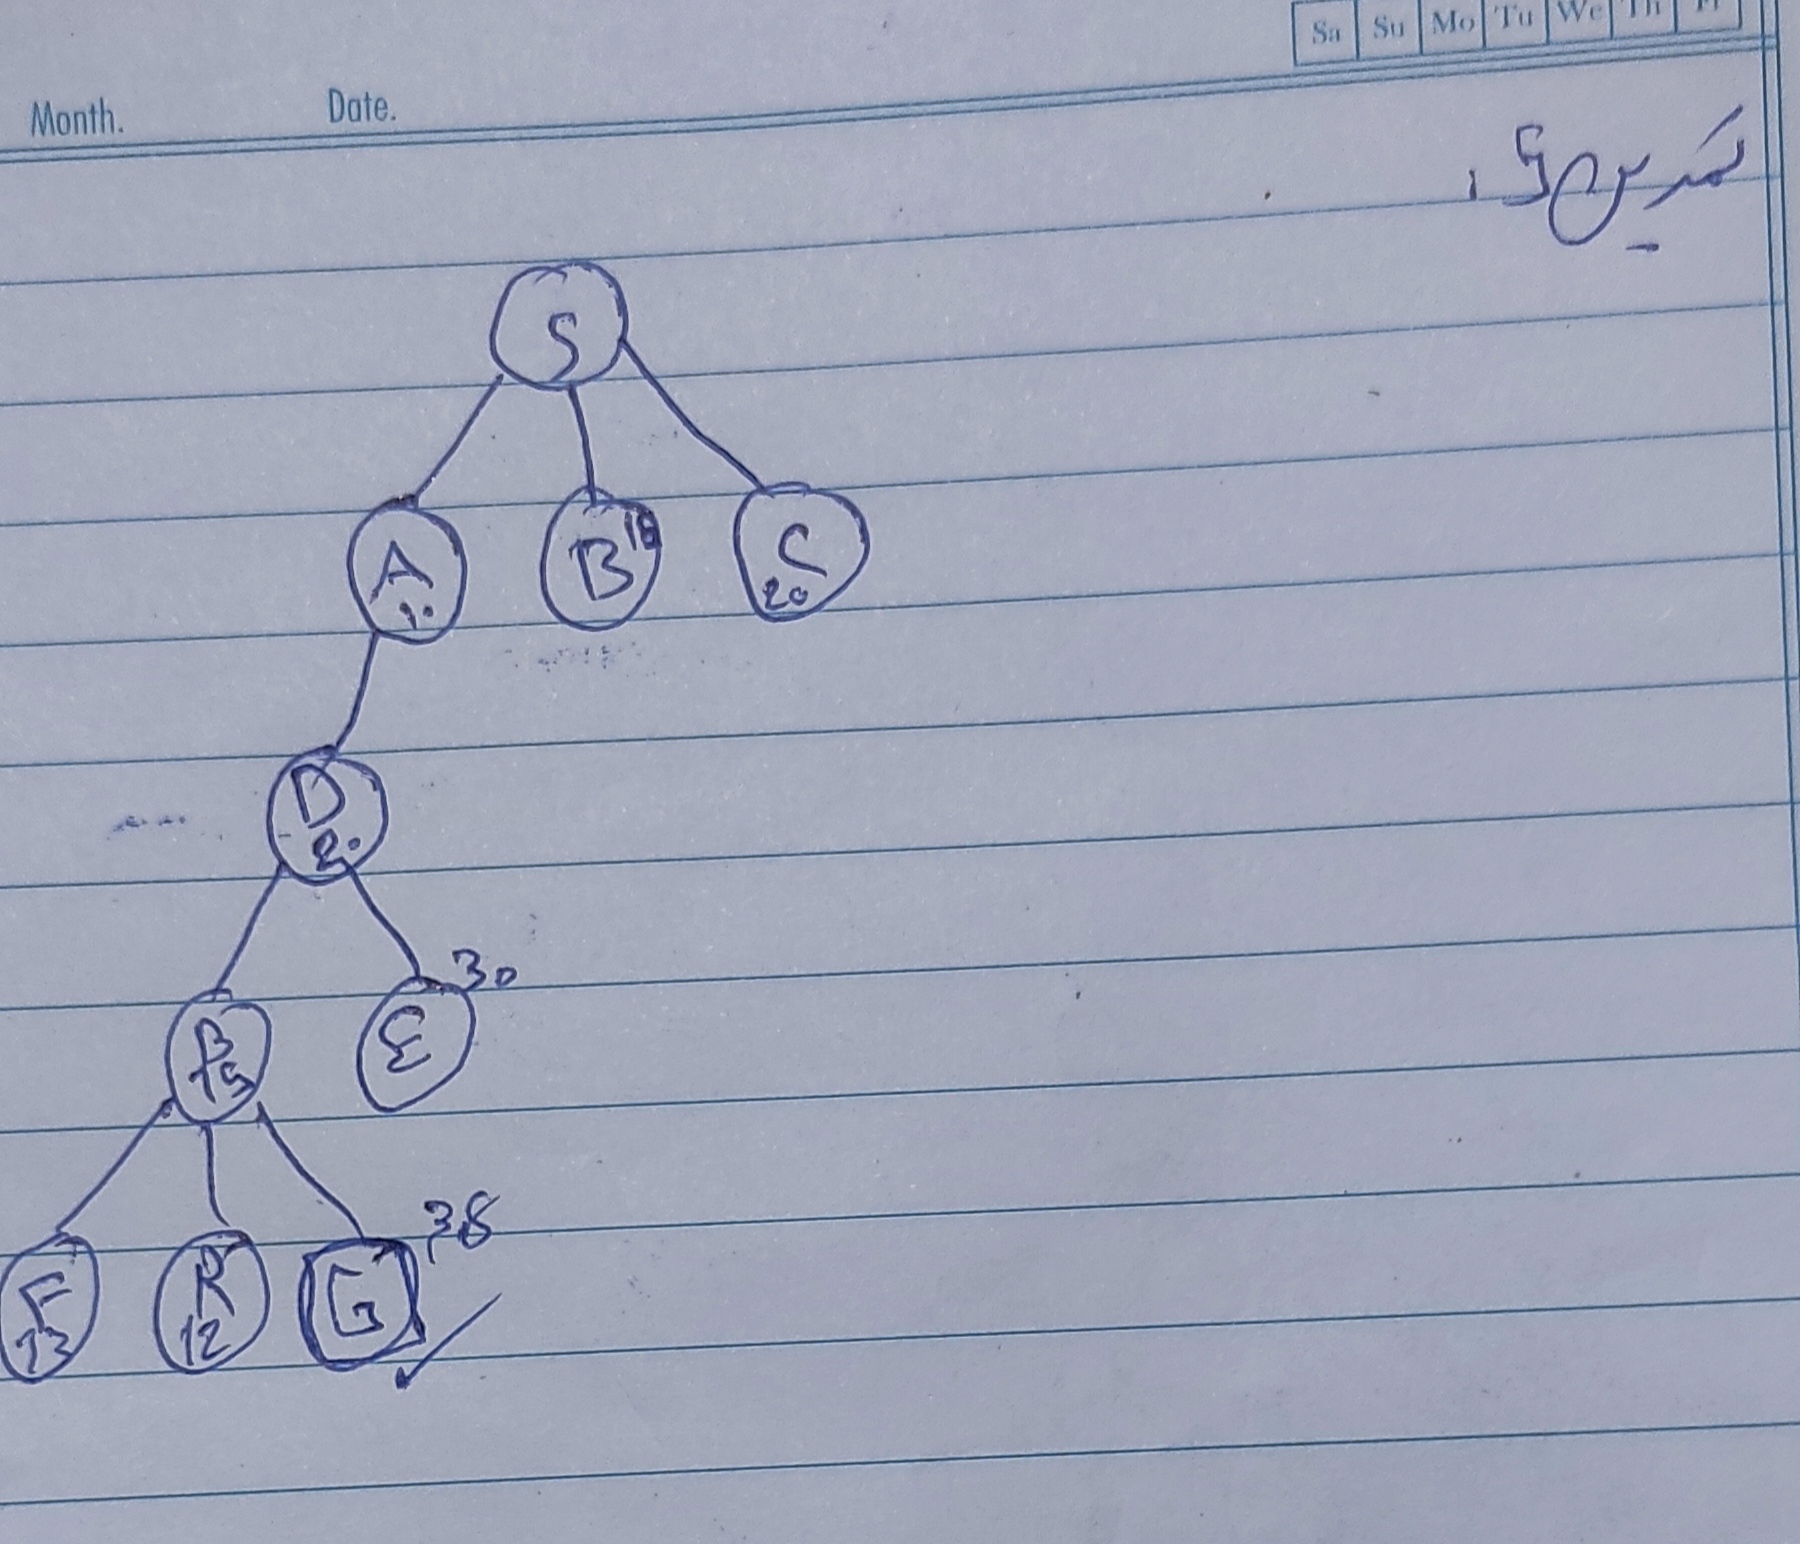 Sa Su Mo Tu We Th Fr
Month. Date.
تمرین 5،
S
A 10 B 18 C 20
D 20
E 30
F 13 R 12 G